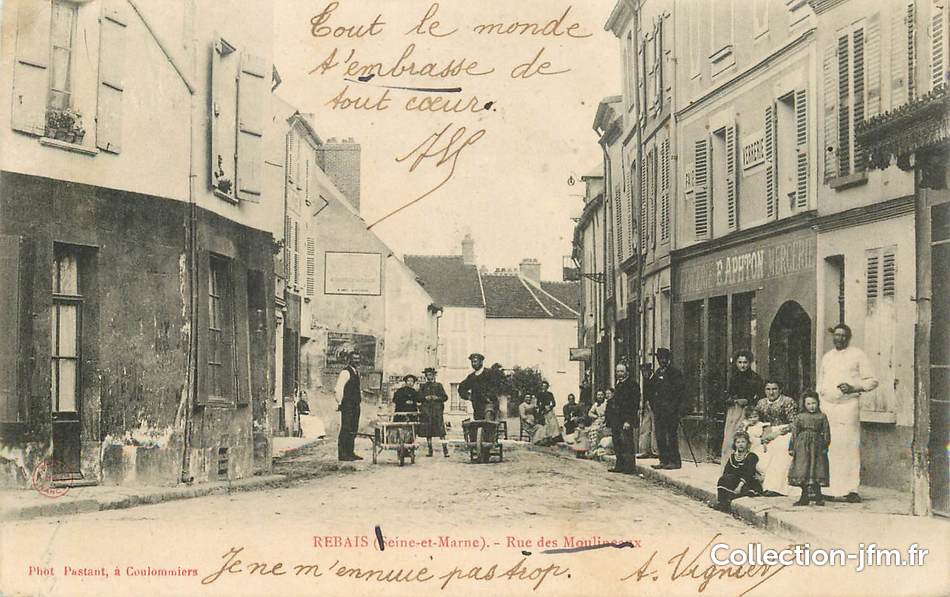 Tout le monde
t'embrasse de
tout cœur.
VERRERIE
REBAIS (Seine-et-Marne). - Rue des Moulineaux
Phot Pastant, à Coulommiers
Je ne m'ennuie pas trop.
A. Vignier
Collection-jfm.fr